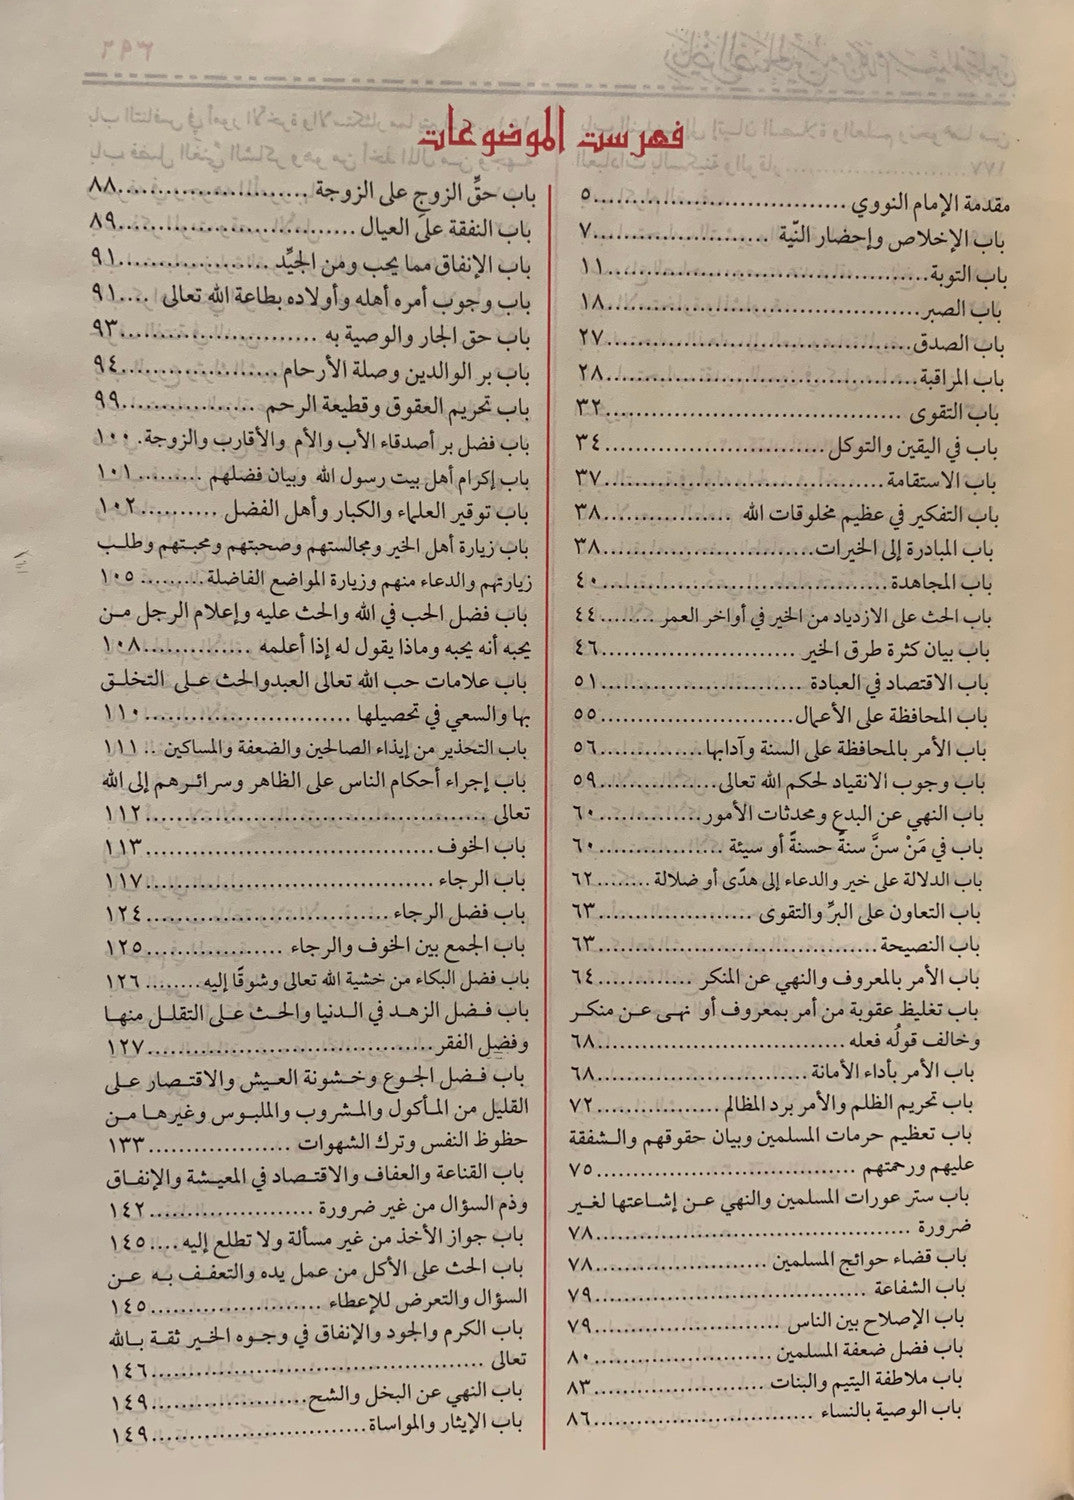 فهرست الموضوعات
مقدمة الإمام النووي ........ ٥
باب الإخلاص وإحضار النّية ........ ٧
باب التوبة ........ ١١
باب الصبر ........ ١٨
باب الصدق ........ ٢٧
باب المراقبة ........ ٢٨
باب التقوى ........ ٣٢
باب في اليقين والتوكل ........ ٣٤
باب الاستقامة ........ ٣٧
باب التفكير في عظيم مخلوقات الله ........ ٣٨
باب المبادرة إلى الخيرات ........ ٣٨
باب المجاهدة ........ ٤٠
باب الحث على الازدياد من الخير في أواخر العمر ........ ٤٤
باب بيان كثرة طرق الخير ........ ٤٦
باب الاقتصاد في العبادة ........ ٥١
باب المحافظة على الأعمال ........ ٥٥
باب الأمر بالمحافظة على السنة وآدابها ........ ٥٦
باب وجوب الانقياد لحكم الله تعالى ........ ٥٩
باب النهي عن البدع ومحدثات الأمور ........ ٦٠
باب في مَنْ سنَّ سنةً حسنةً أو سيئة ........ ٦٠
باب الدلالة على خير والدعاء إلى هدًى أو ضلالة ........ ٦٢
باب التعاون على البرِّ والتقوى ........ ٦٣
باب النصيحة ........ ٦٣
باب الأمر بالمعروف والنهي عن المنكر ........ ٦٤
باب تغليظ عقوبة من أمر بمعروف أو نهى عن منكر
وخالف قولُه فعله ........ ٦٨
باب الأمر بأداء الأمانة ........ ٦٨
باب تحريم الظلم والأمر برد المظالم ........ ٧٢
باب تعظيم حرمات المسلمين وبيان حقوقهم والشفقة
عليهم ورحمتهم ........ ٧٥
باب ستر عورات المسلمين والنهي عن إشاعتها لغير
ضرورة ........ ٧٨
باب قضاء حوائج المسلمين ........ ٧٨
باب الشفاعة ........ ٧٩
باب الإصلاح بين الناس ........ ٧٩
باب فضل ضعفة المسلمين ........ ٨٠
باب ملاطفة اليتيم والبنات ........ ٨٣
باب الوصية بالنساء ........ ٨٦
باب حقِّ الزوجِ على الزوجة ........ ٨٨
باب النفقة على العيال ........ ٨٩
باب الإنفاق مما يحب ومن الجيِّد ........ ٩١
باب وجوب أمره أهله وأولاده بطاعة الله تعالى .... ٩١
باب حق الجار والوصية به ........ ٩٣
باب بر الوالدين وصلة الأرحام ........ ٩٤
باب تحريم العقوق وقطيعة الرحم ........ ٩٩
باب فضل بر أصدقاء الأب والأم والأقارب والزوجة . ١٠٠
باب إكرام أهل بيت رسول الله وبيان فضلهم ........ ١٠١
باب توقير العلماء والكبار وأهل الفضل ........ ١٠٢
باب زيارة أهل الخير ومجالستهم وصحبتهم ومحبتهم وطلب
زيارتهم والدعاء منهم وزيارة المواضع الفاضلة ........ ١٠٥
باب فضل الحب في الله والحث عليه وإعلام الرجل من
يحبه أنه يحبه وماذا يقول له إذا أعلمه ........ ١٠٨
باب علامات حب الله تعالى العبدوالحث على التخلق
بها والسعي في تحصيلها ........ ١١٠
باب التحذير من إيذاء الصالحين والضعفة والمساكين .. ١١١
باب إجراء أحكام الناس على الظاهر وسرائرهم إلى الله
تعالى ........ ١١٢
باب الخوف ........ ١١٣
باب الرجاء ........ ١١٧
باب فضل الرجاء ........ ١٢٤
باب الجمع بين الخوف والرجاء ........ ١٢٥
باب فضل البكاء من خشية الله تعالى وشوقًا إليه ........ ١٢٦
باب فضل الزهد في الدنيا والحث على التقلل منها
وفضل الفقر ........ ١٢٧
باب فضل الجوع وخشونة العيش والاقتصار على
القليل من المأكول والمشروب والملبوس وغيرها من
حظوظ النفس وترك الشهوات ........ ١٣٣
باب القناعة والعفاف والاقتصاد في المعيشة والإنفاق
وذم السؤال من غير ضرورة ........ ١٤٢
باب جواز الأخذ من غير مسألة ولا تطلع إليه .... ١٤٥
باب الحث على الأكل من عمل يده والتعفف به عن
السؤال والتعرض للإعطاء ........ ١٤٥
باب الكرم والجود والإنفاق في وجوه الخير ثقة بالله
تعالى ........ ١٤٦
باب النهي عن البخل والشح ........ ١٤٩
باب الإيثار والمواساة ........ ١٤٩